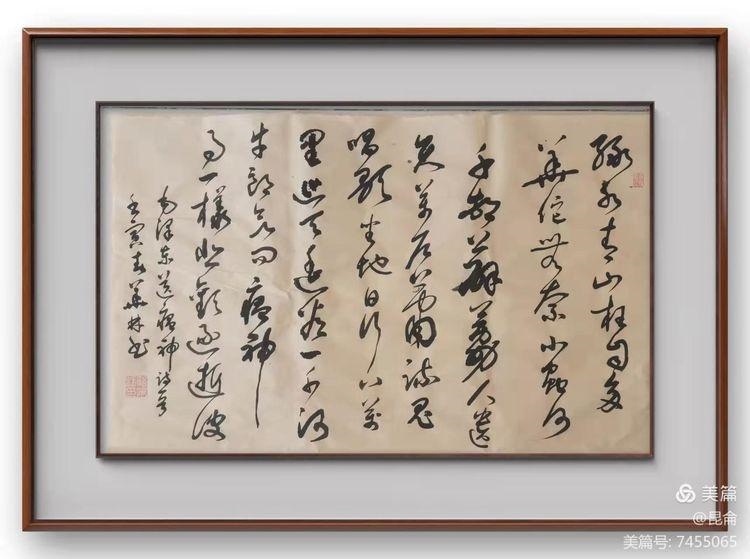 绿水青山枉自多
華佗無奈小蟲何
千邨薜荔人遗
矢萬户萧疏鬼
唱歌坐地日行八萬
里巡天遥看一千河
牛郎欲问瘟神
事一樣悲歡逐逝波
毛泽东送瘟神诗一首
壬寅春華林书
美篇
@昆侖
美篇号: 7455065